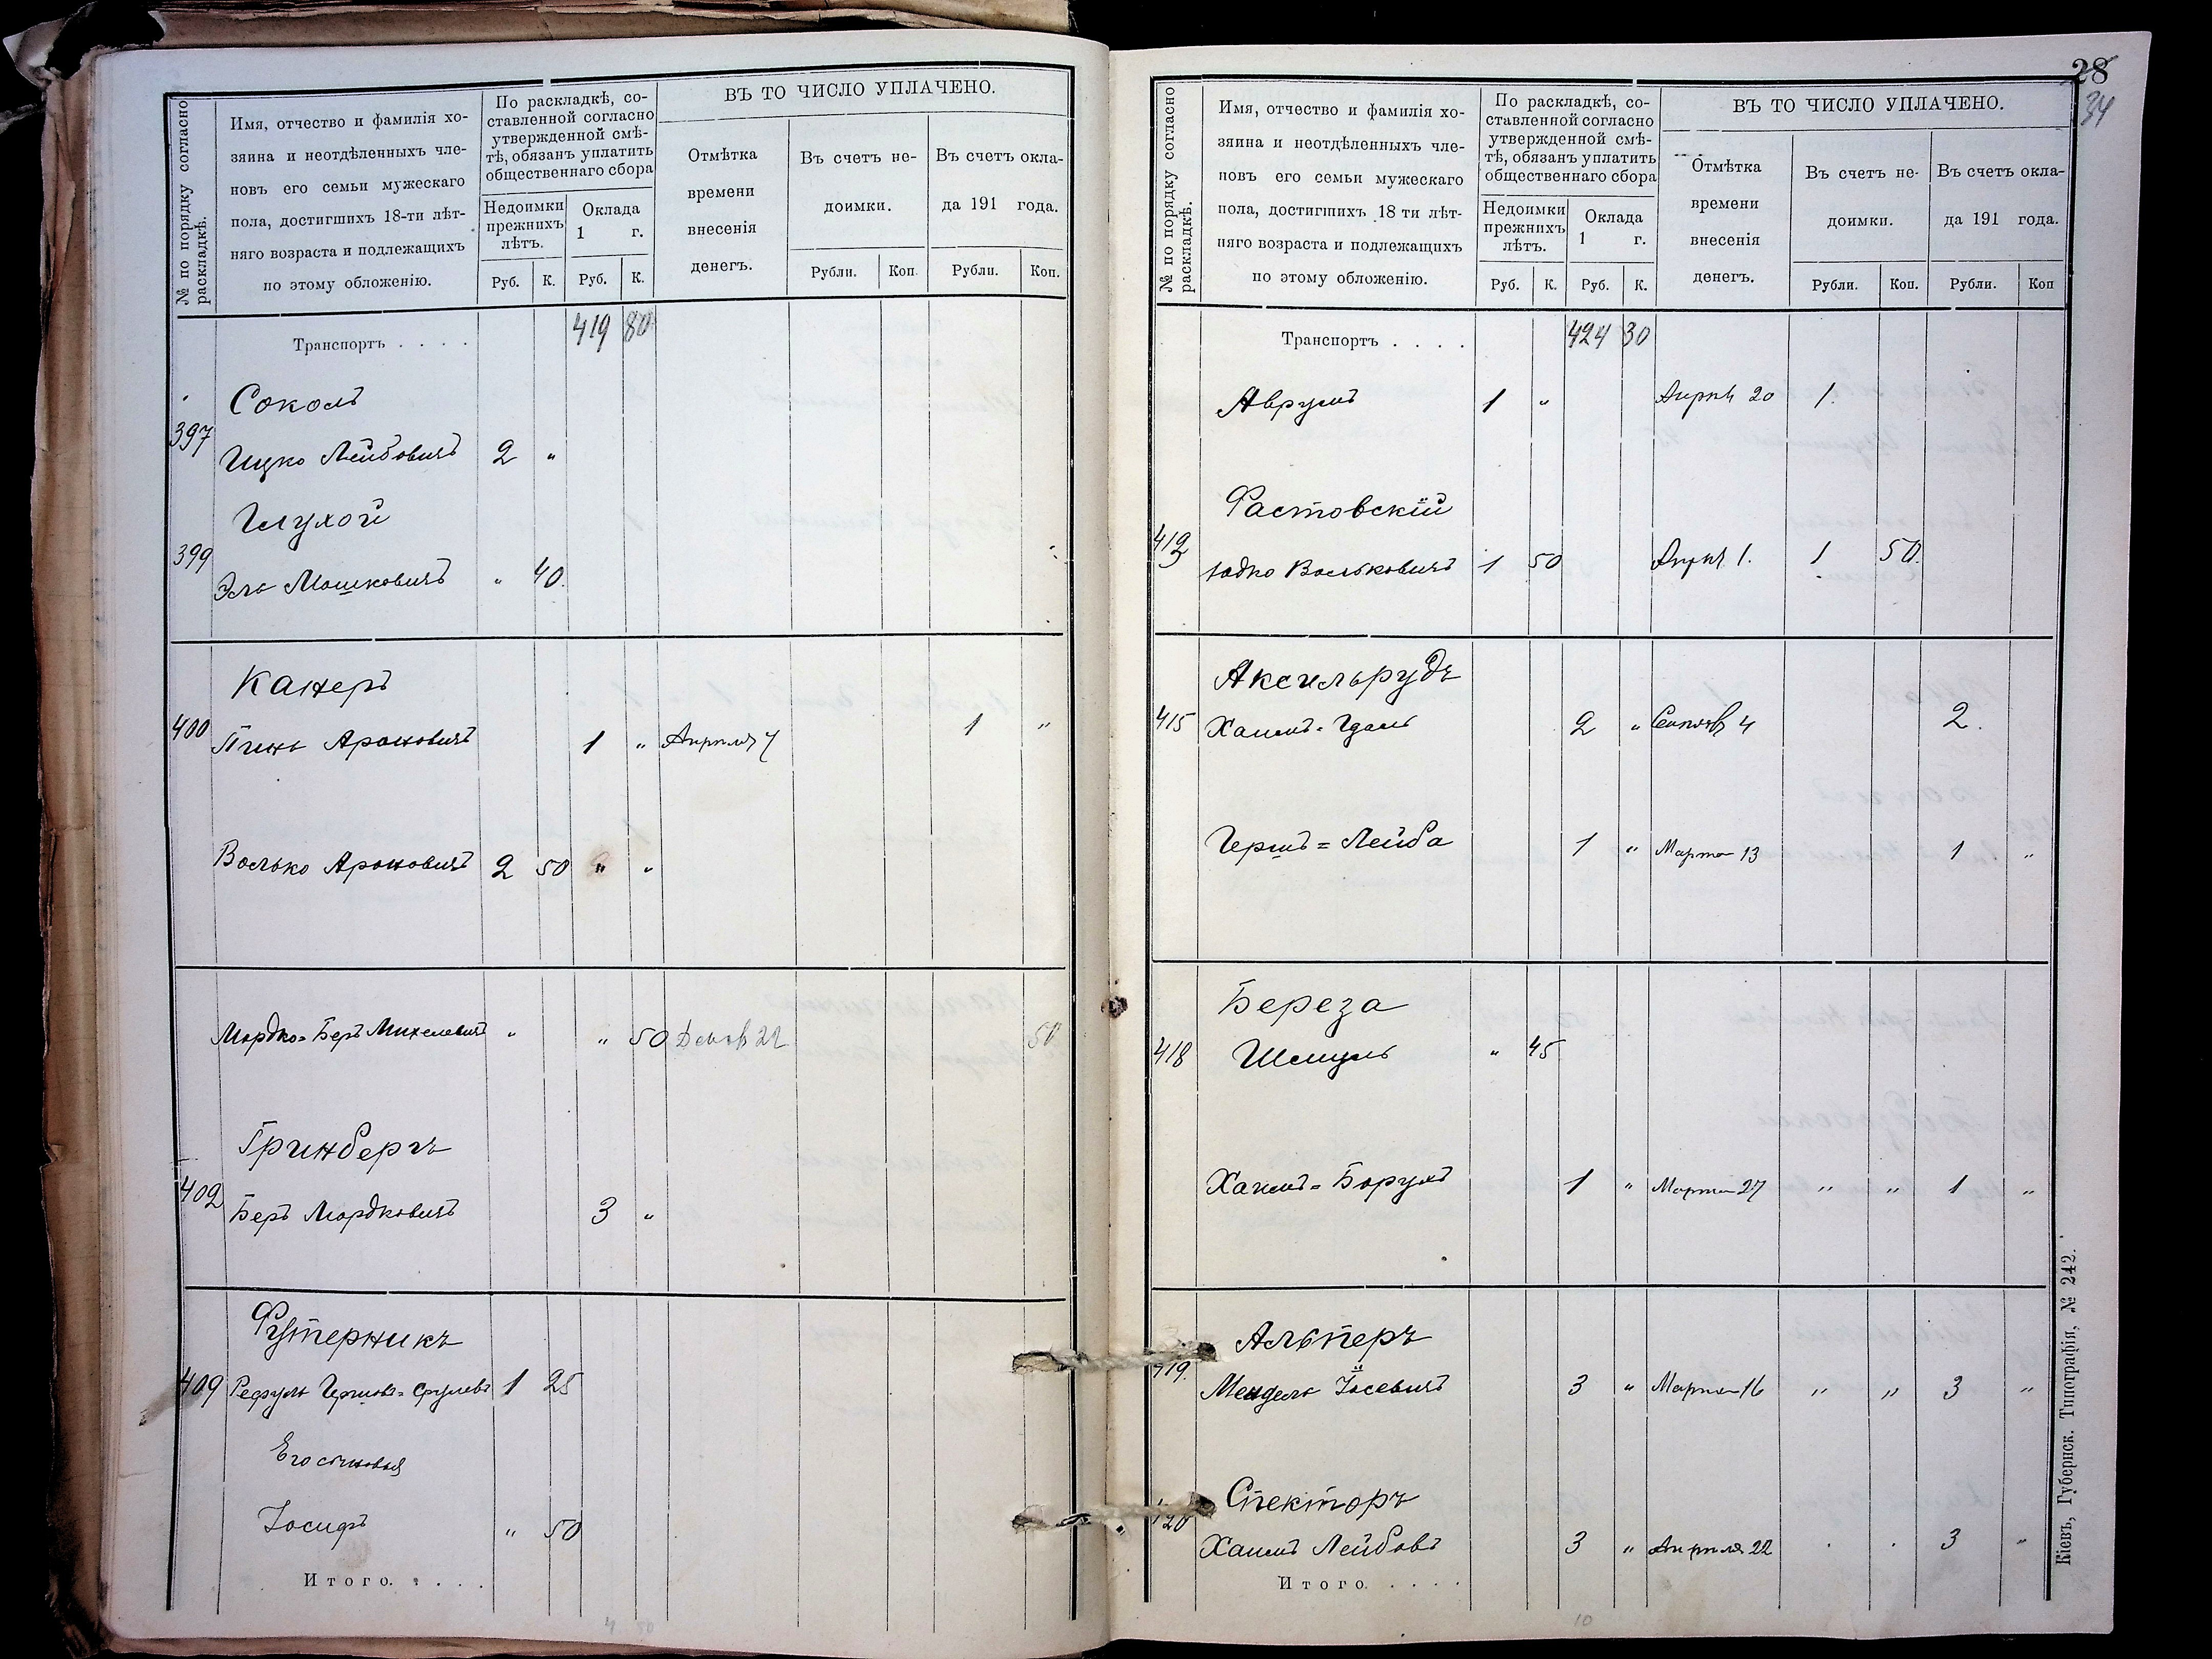 № по порядку согласно раскладкѣ.
Имя, отчество и фамилія хо-
зяина и неотдѣленныхъ чле-
новъ его семьи мужескаго
пола, достигшихъ 18-ти лѣт-
няго возраста и подлежащихъ
по этому обложенію.
По раскладкѣ, со-
ставленной согласно
утвержденной смѣ-
тѣ, обязанъ уплатить
общественнаго сбора
Недоимки
прежнихъ
лѣтъ.
Оклада
1 г.
Руб. К. Руб. К.
ВЪ ТО ЧИСЛО УПЛАЧЕНО.
Отмѣтка
времени
внесенія
денегъ.
Въ счетъ не-
доимки.
Въ счетъ окла-
да 191 года.
Рубли. Коп. Рубли. Коп.
Транспортъ . . . . 419 80
Соколъ
397 Ицко Лейбовичъ 2 "
Глухой
399 Эль Мошковичъ " 40.
Канеръ
400 Пинь Ароновичъ 1 " Апрѣля 4 1 "
Волько Ароновичъ 2 50 " "
Мордко=Беръ Михелевичъ " " 50 Декаб 22 50
Гринбергъ
402 Беръ Мордковичъ 3 "
Футерникъ
409 Рефулъ Гершов=Срулевъ 1 25
Его сыновья
Іосифъ " 50
Итого. . . . .
4 50
28
34
№ по порядку согласно раскладкѣ.
Имя, отчество и фамилія хо-
зяина и неотдѣленныхъ чле-
новъ его семьи мужескаго
пола, достигшихъ 18 ти лѣт-
няго возраста и подлежащихъ
по этому обложенію.
По раскладкѣ, со-
ставленной согласно
утвержденной смѣ-
тѣ, обязанъ уплатить
общественнаго сбора
Недоимки
прежнихъ
лѣтъ.
Оклада
1 г.
Руб. К. Руб. К.
ВЪ ТО ЧИСЛО УПЛАЧЕНО.
Отмѣтка
времени
внесенія
денегъ.
Въ счетъ не-
доимки.
Въ счетъ окла-
да 191 года.
Рубли. Коп. Рубли. Коп
Транспортъ . . . . 424 30
Аврумъ 1 " Апрѣл 20 1.
Фастовскій
412 Юдко Вольковичъ 1 50 Апрѣл 1. 1 50.
Аксельрудъ
415 Хаимъ=Удаль 2 " Сентяб 4 2.
Гершъ=Лейба 1 " Марта 13 1 "
Береза
418 Шмуль " 45
Хаимъ=Борухъ 1 " Марта 27 " " 1 "
Альперъ
419. Мендель Іосевичъ 3 " Марта 16 " " 3 "
Спекторъ
420 Хаимъ Лейбовъ 3 " Апрѣля 22 . . 3 "
Итого. . . . .
10
Кіевъ, Губернск. Типографія, № 242.